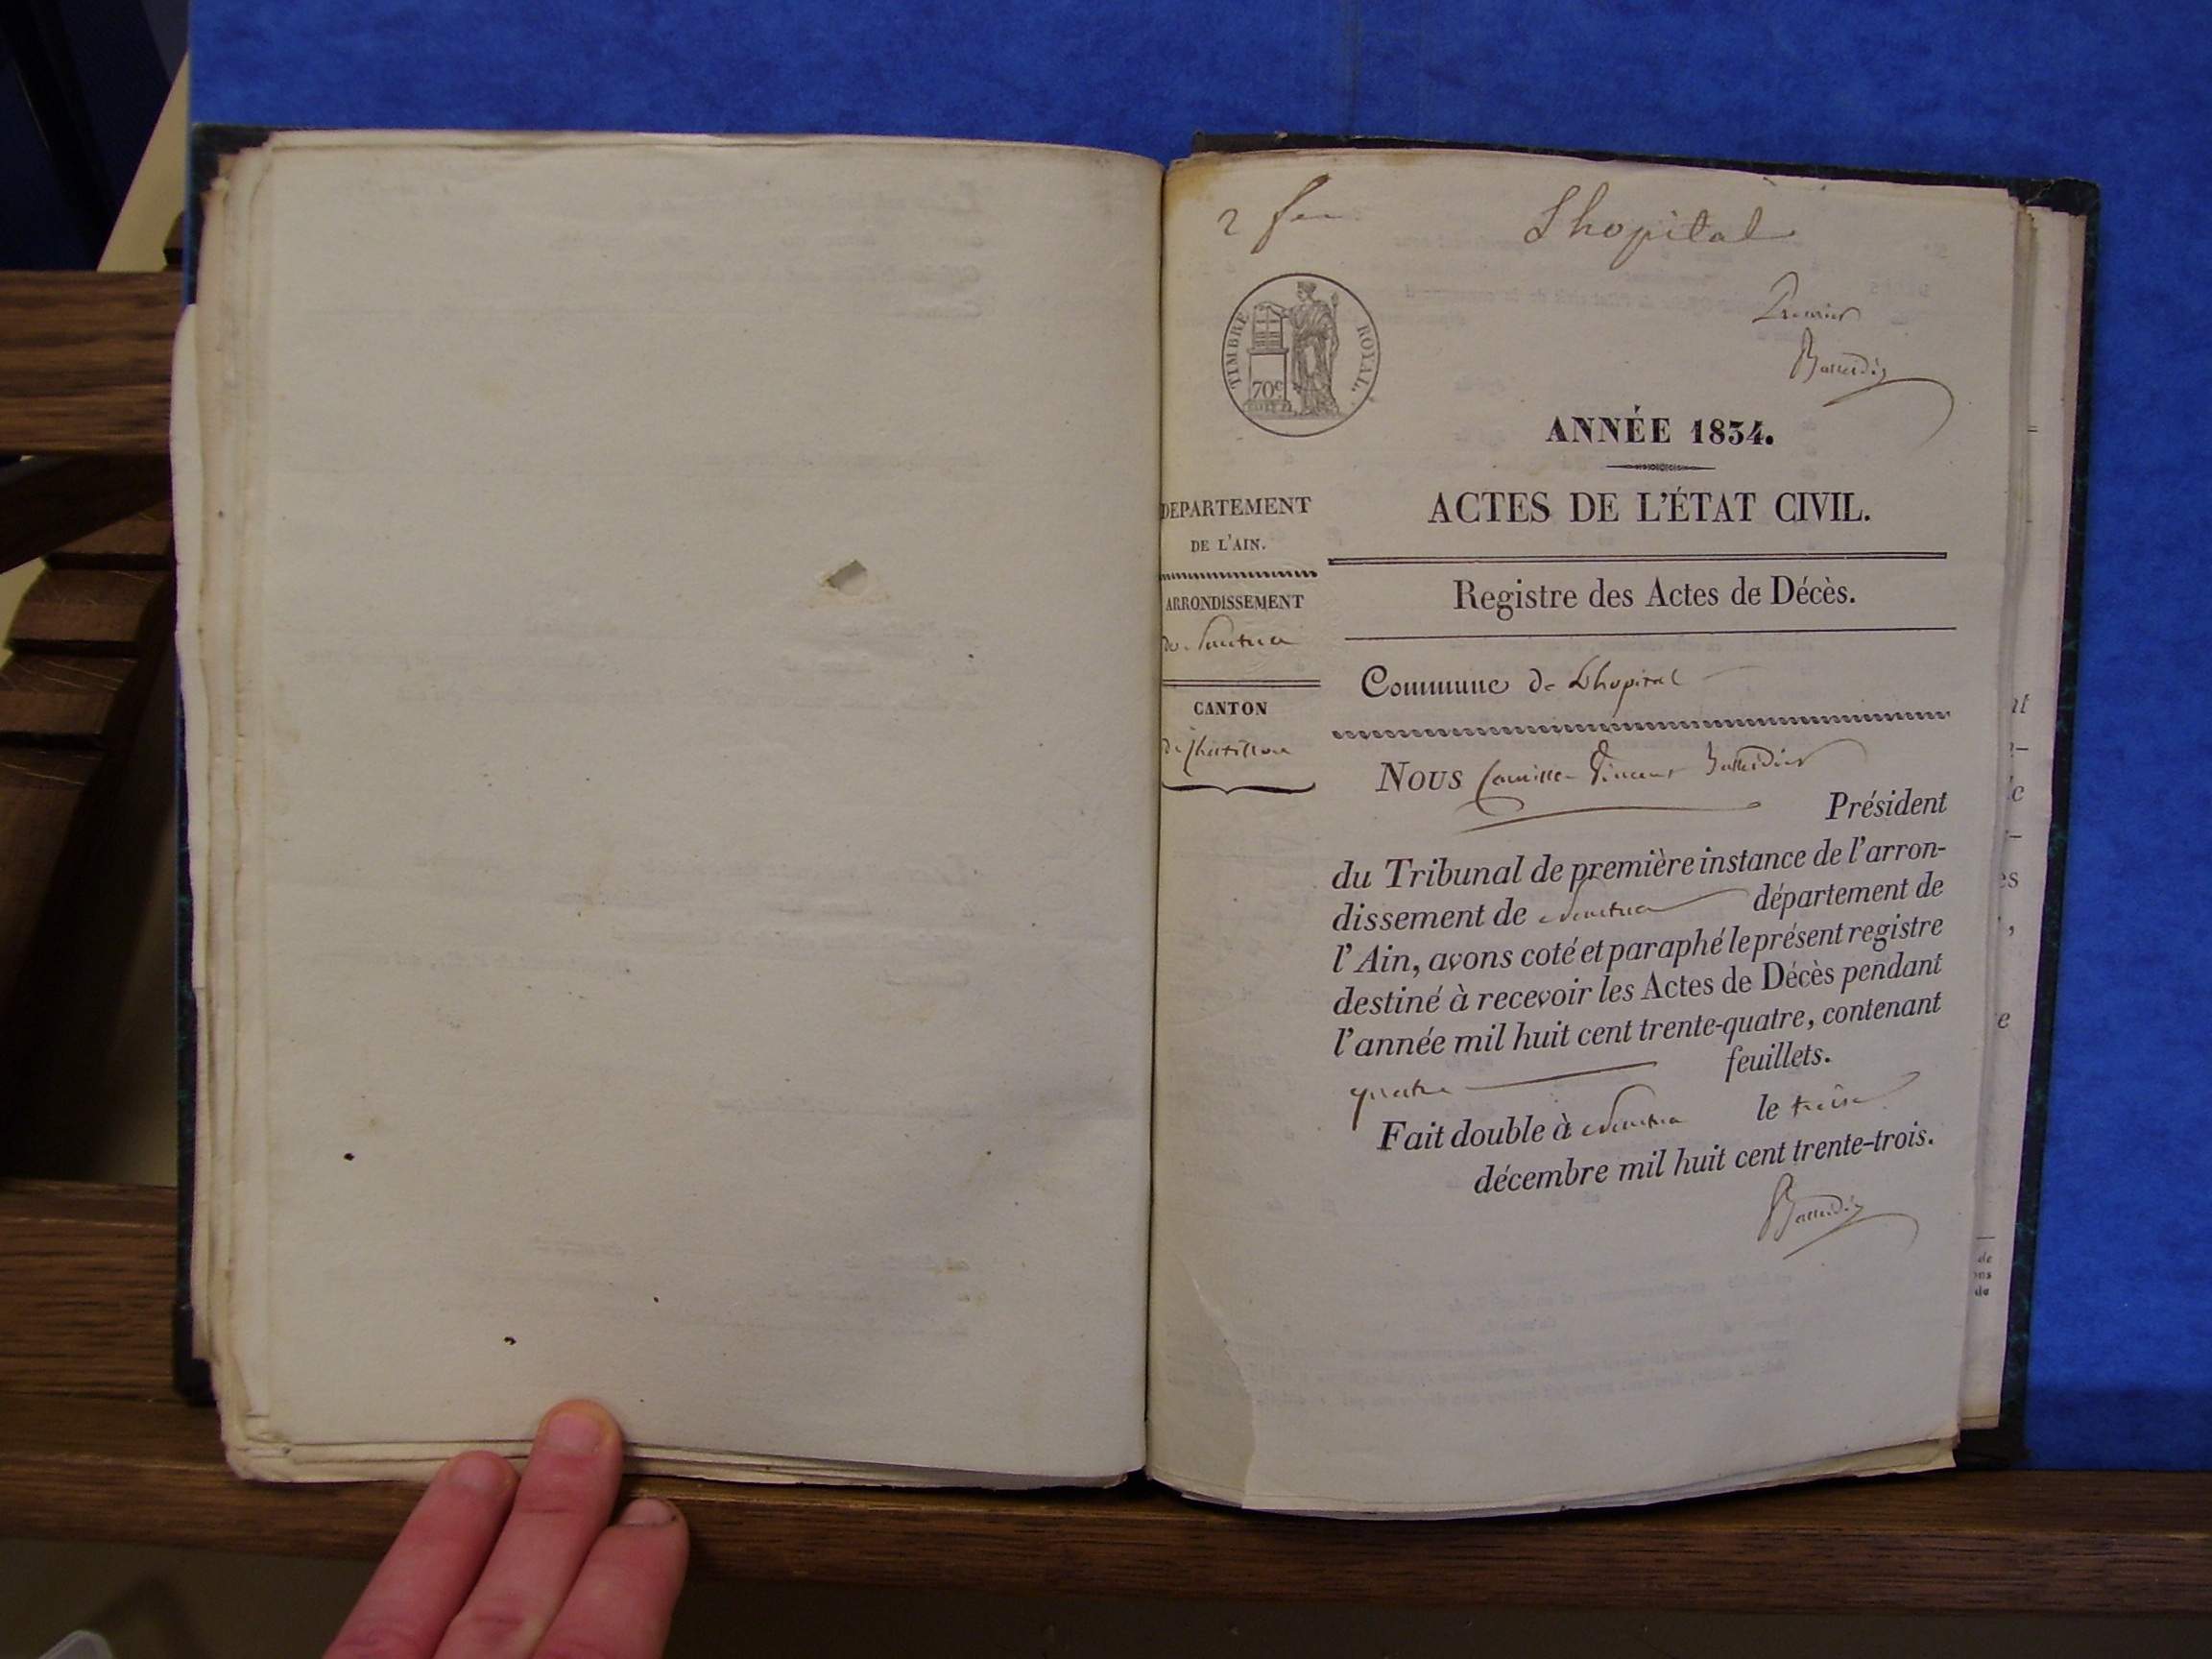 2 feu
Lhopital
Premier
TIMBRE ROYAL.
70c
ANNÉE 1834.
ACTES DE L'ÉTAT CIVIL.
DÉPARTEMENT
DE L'AIN.
Registre des Actes de Décès.
ARRONDISSEMENT
de Nantua
Commune de Lhopital
CANTON
de Chatillon
Nous Camille Vincent
Président
du Tribunal de première instance de l'arron-
dissement de Nantua département de
l'Ain, avons coté et paraphé le présent registre
destiné à recevoir les Actes de Décès pendant
l'année mil huit cent trente-quatre, contenant
quatre feuillets.
Fait double à Nantua le treize
décembre mil huit cent trente-trois.